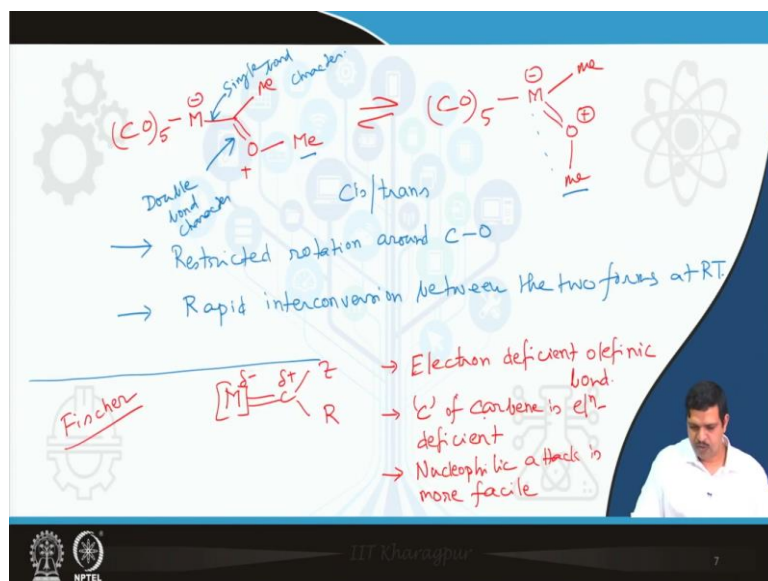 Single bond character.
(CO)5 - M ⊖ Me
O + - Me
Double bond character
⇌
(CO)5 - M ⊖ Me
O ⊕
Me
Cis/trans
→ Restricted rotation around C-O
→ Rapid interconversion between the two forms at RT.
Fischer
[M] δ- = C δ+ Z
R
→ Electron deficient olefinic bond.
→ 'C' of carbene is eln- deficient
→ Nucleophilic attack is more facile
IIT Kharagpur
NPTEL
7